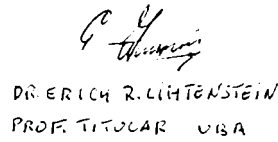 DR. ERICH R. LIHTENSTEIN
PROF. TITULAR UBA